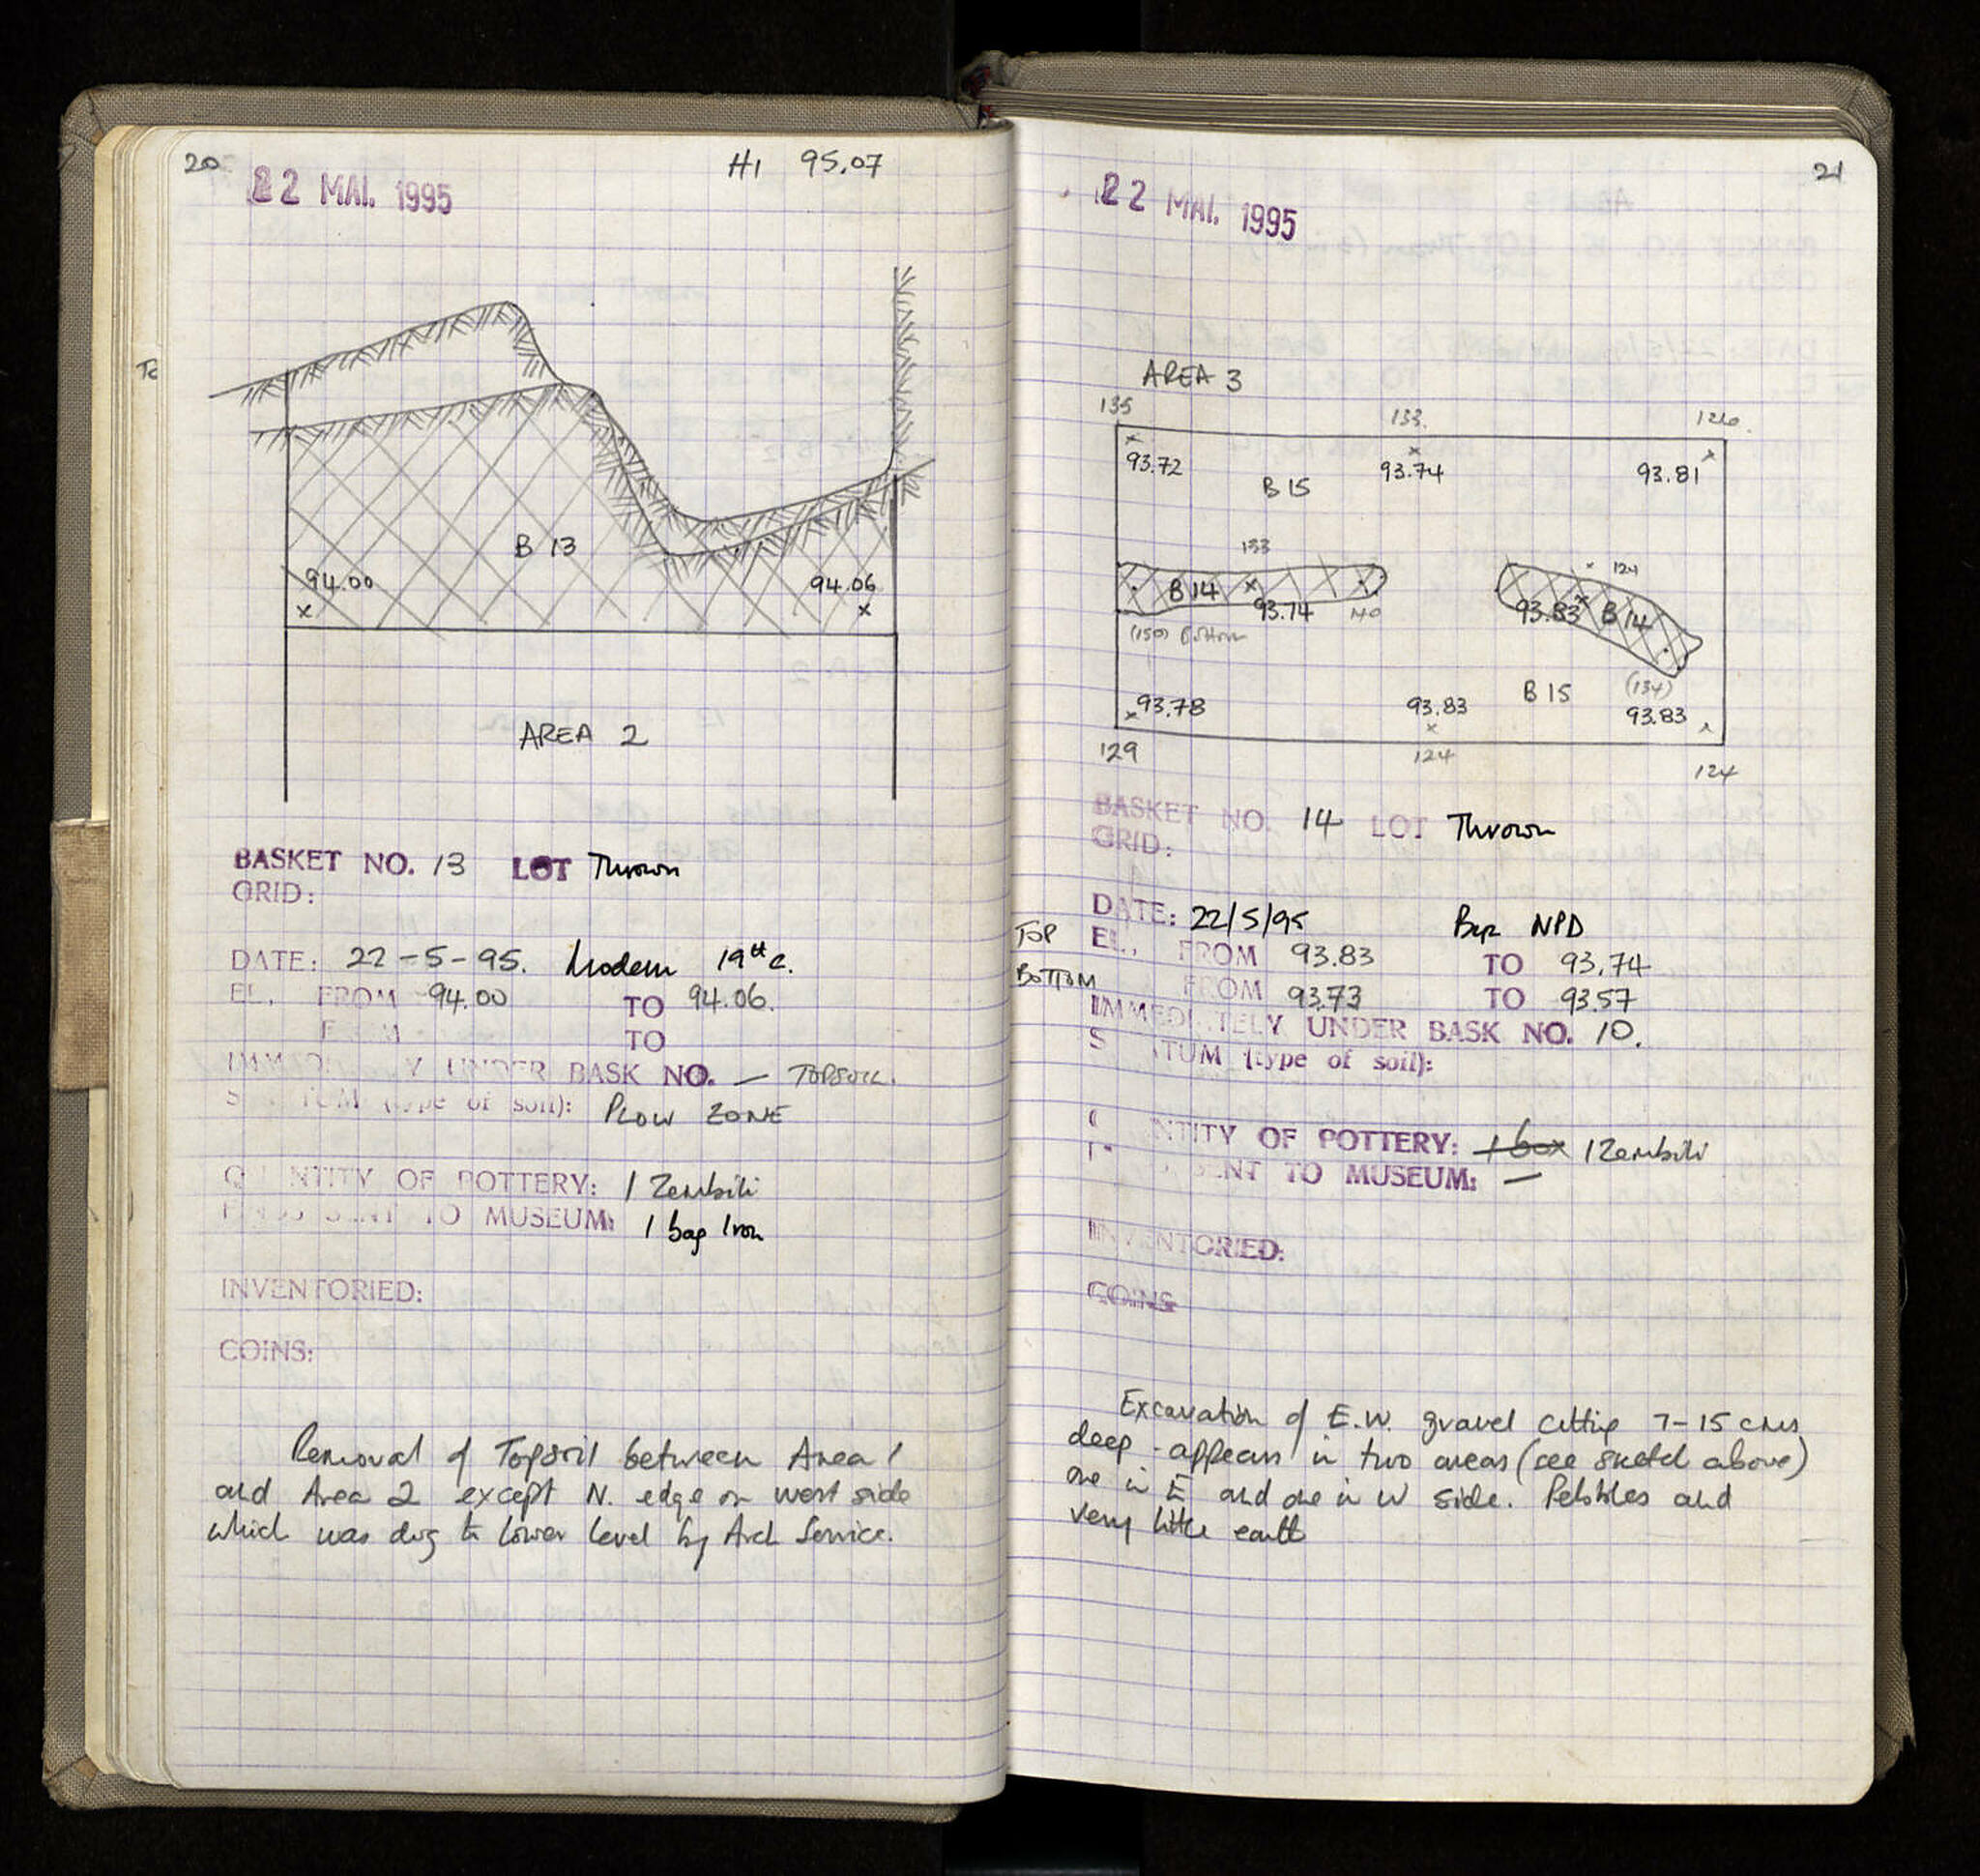 20
H1 95.07
22 MAI. 1995
B 13
94.00
94.06
x x
AREA 2
BASKET NO. 13 LOT Thrown
GRID:
DATE: 22-5-95. Modern 19th c.
EL. FROM 94.00 TO 94.06.
FROM TO
UNDER BASK NO. — TOPSOIL.
(type of soil): PLOW ZONE
QUANTITY OF POTTERY: 1 Zembili
SENT TO MUSEUM: 1 bag Iron
INVENTORIED:
COINS:
Removal of Topsoil between Area 1
and Area 2 except N. edge on west side
which was dug to lower level by Arch Service.
21
22 MAI. 1995
AREA 3
135 133. 126.
x x x
93.72 93.74 93.81
B 15
133
124
B 14 x
93.74
140
93.83 x B 14
(150) Bottom
B 15
(134)
93.78 93.83 93.83
x x
129 124 124
BASKET NO. 14 LOT Thrown
GRID:
DATE: 22/5/95 Byz NPD
TOP EL., FROM 93.83 TO 93.74
BOTTOM FROM 93.73 TO 93.57
IMMEDIATELY UNDER BASK NO. 10.
STATUM (type of soil):
QUANTITY OF POTTERY: 1 box 1 Zembili
SENT TO MUSEUM: —
INVENTORIED:
COINS
Excavation of E.W. gravel cutting 7-15 cms
deep - appears in two areas (see sketch above)
one in E and one in W side. Pebbles and
very little earth